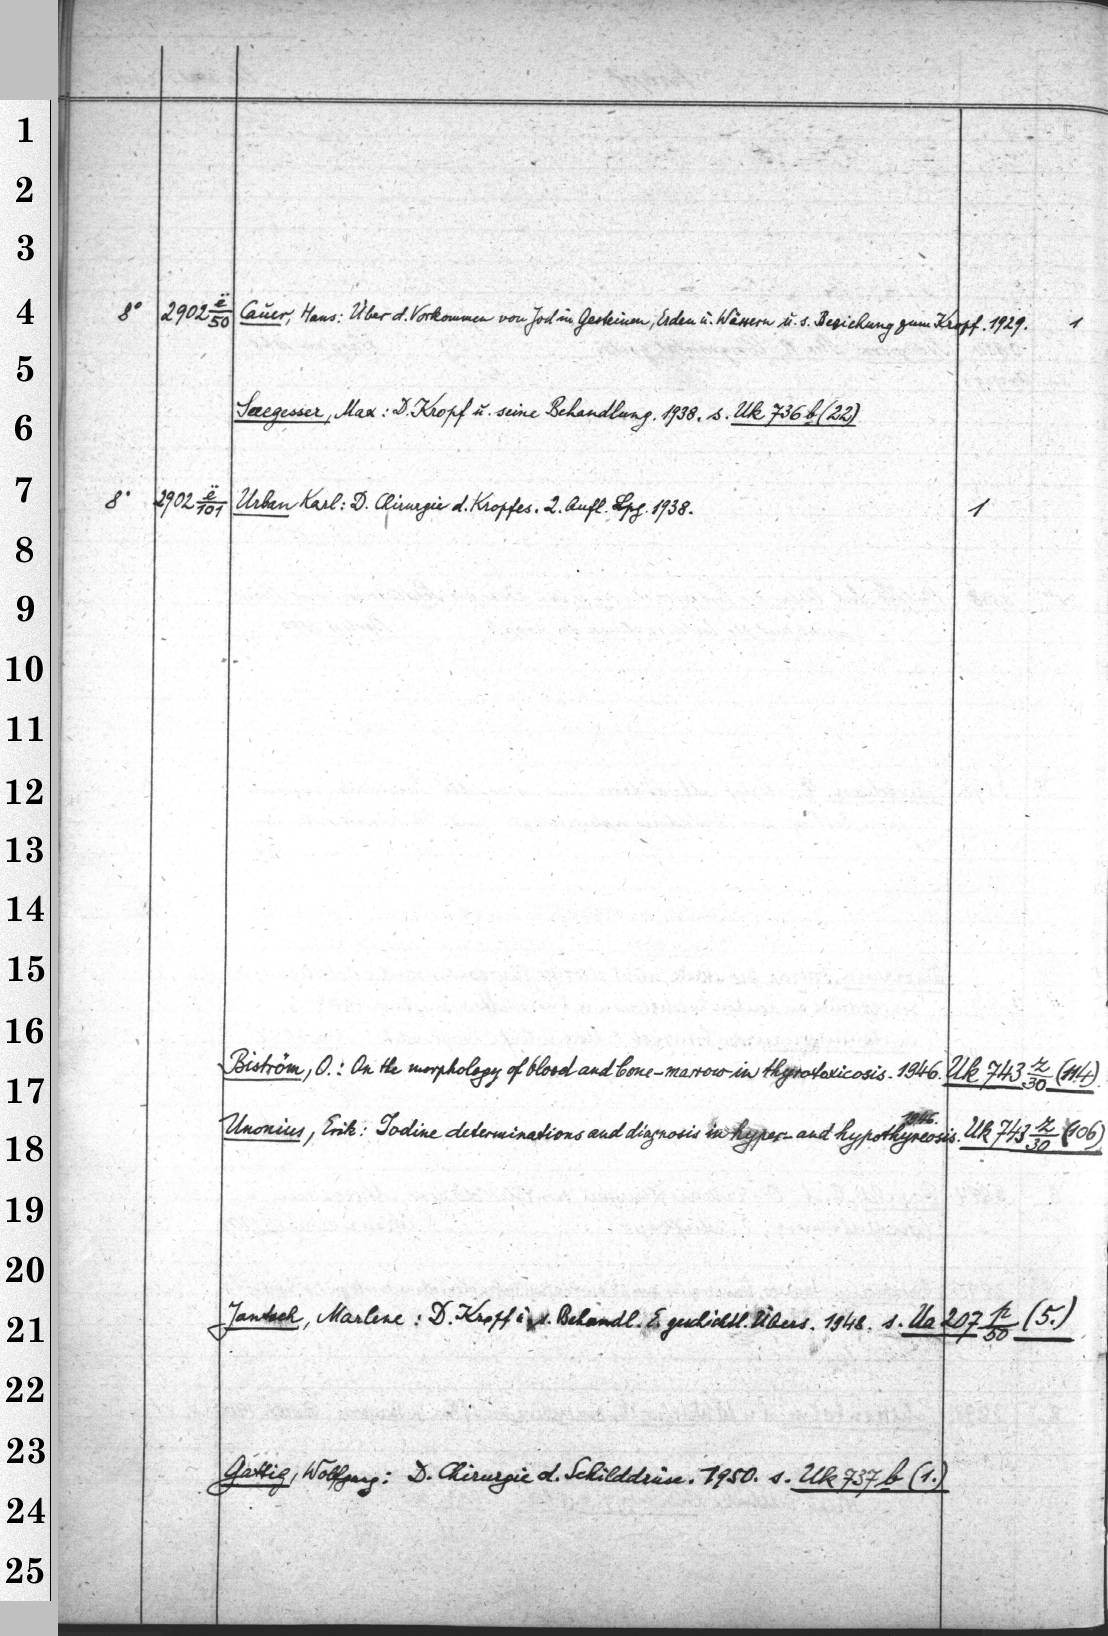 1
2
3
4
5
6
7
8
9
10
11
12
13
14
15
16
17
18
19
20
21
22
23
24
25
8° 2902 ë/50 Cauer, Hans: Über d. Vorkommen von Jod in Gesteinen, Erden u. Wässern u. s. Beziehung zum Kropf. 1929. 1
Saegesser, Max: D. Kropf u. seine Behandlung. 1938. s. Uk 736 b (22)
8° 2902 ë/101 Urban Karl: D. Chirurgie d. Kropfes. 2. Aufl. Lpg. 1938. 1
Biström, O.: On the morphology of blood and bone-marrow in thyrotoxicosis. 1946. Uk 743 z/30 (114)
Unonius, Erik: Iodine determinations and diagnosis in hyper- and hypothyreosis. 1946. Uk 743 z/30 (106)
Jantsch, Marlene: D. Kropf u. s. Behandl. E. geschichtl. Übers. 1948. s. Ua 207 p/50 (5.)
Gattig, Wolfgang: D. Chirurgie d. Schilddrüse. 1950. s. Uk 737 b (1.)